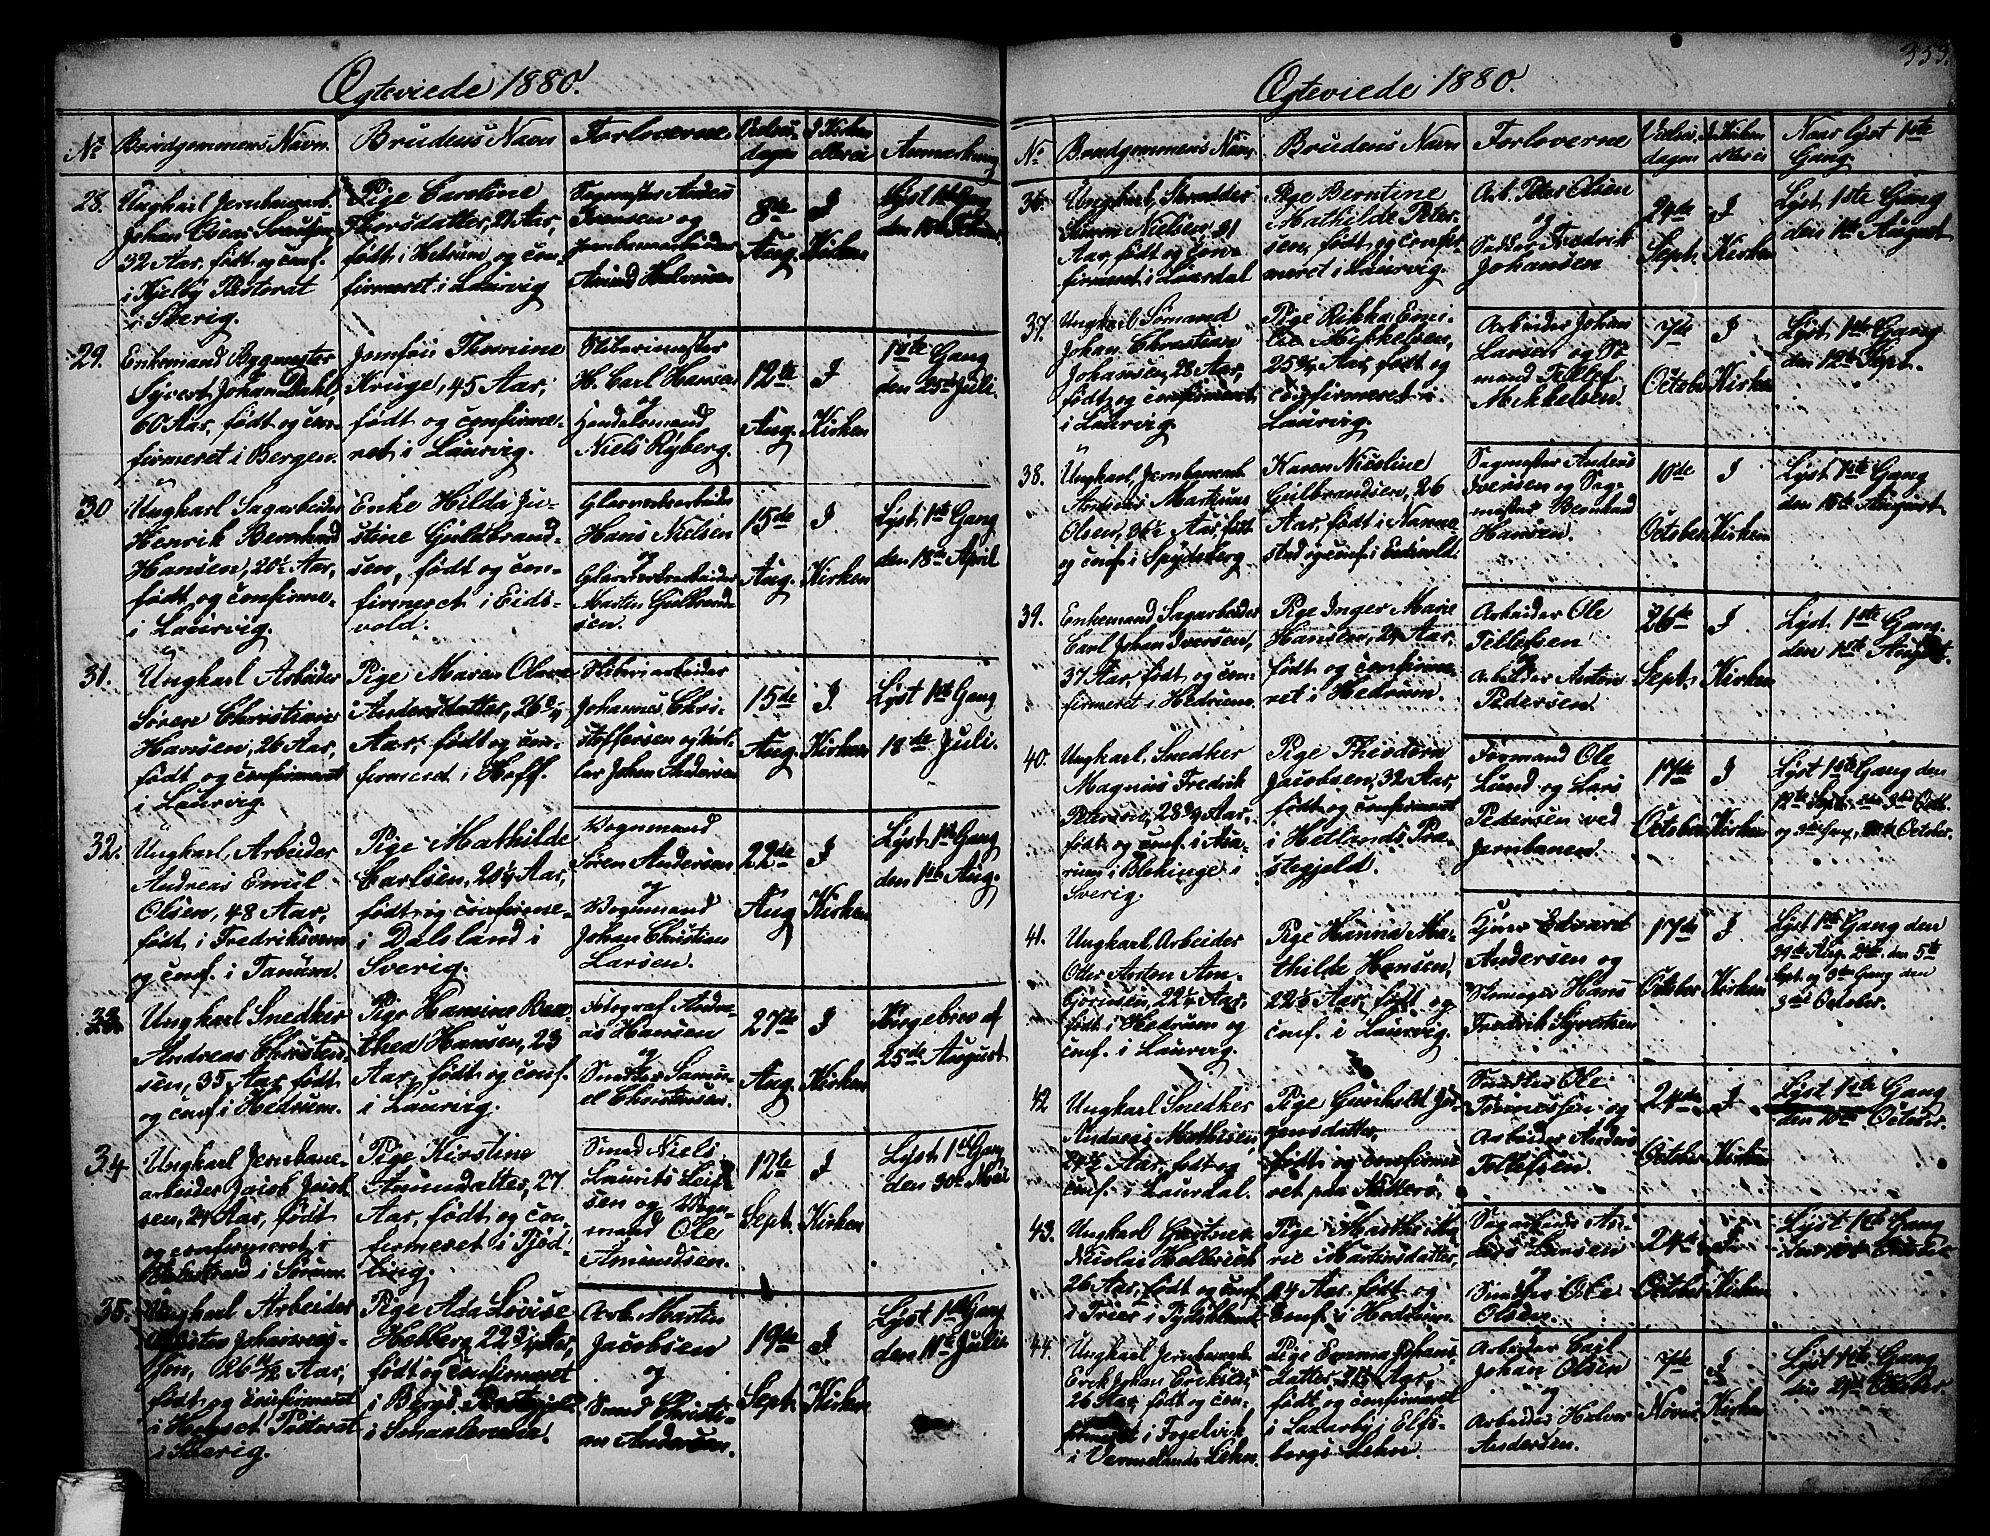 353.
Ægteviede 1880.
No
Brudgommens Navn.
Brudens Navn
Forloverne
Vielses-
dagen
I Kirken
eller ei
Anmærkning
28.
Ungkarl Jernbanearb.
Johan Oscar
32 Aar, født og conf.
i Kjelby Pastorat
i Sverig.
Pige Caroline
Thorsdatter, 21 Aar,
født i Hedrum og con-
firmeret i Laurvig
Sagmester Anders
Iversen og
Jernbanearbeider
Amund Halvorsen
8de
Aug.
I
Kirken
Lyst 1ste Gang
den
29.
Enkemand Bygmester
Syvert Johan Dahl,
60 Aar, født og con-
firmeret i Bergen.
Jomfru Thomine
Kruge, 45 Aar,
født og confirme-
ret i Laurvig.
Stiverimester
H. Carl Hansen
og
Handelsmand
Niels Ryberg.
12te
Aug.
I
Kirken
1ste Gang
den 25de Juli.
30
Ungkarl Sagarbeider
Henrik Bernhard
Hansen, 20½ Aar,
født og confirme-
i Laurvig.
Enke Hilda Ju-
stine Guldbrand-
sen, født og con-
firmeret i Eids-
vold.
Glasværksarbeider
Hans Nielsen
og
Glasværksarbeider
Martin Gulbrand-
sen.
15de
Aug.
I
Kirken
Lyst 1ste Gang
den 18de April
31.
Ungkarl Arbeider
Søren Christian
Hansen, 26 Aar,
født og confirmeret
i Laurvig.
Pige Maren Olava
Andersdatter, 26¾
Aar, født og con-
firmeret i Hoff.
Stiveriarbeider
Johannes Chri-
stoffersen og
Johan Andersen
15de
Aug.
I
Kirken
Lyst 1ste Gang
18de Juli.
32.
Ungkarl, Arbeider
Andreas Emil
Olsen, 48 Aar,
født i Fredriksværn
og conf. i Tanum.
Pige Mathilde
Carlsen, 20¼ Aar,
født og confirme-
i Dalsland i
Sverig.
Vognmand
Søren Andersen
og
Vognmand
Johan Christian
Larsen.
22de
Aug
I
Kirken
Lyst 1ste Gang
den 1ste Aug.
33.
Ungkarl Snedker
Andreas Christen-
sen, 35 Aar født
og conf. i Hedrum.
Pige Hansine
thea Hansen, 23
Aar, født og conf.
i Laurvig.
Fotograf Andre-
as Hansen
og
Snedker Samu-
el Christensen.
27de
Aug.
I
Kirken
Kongebrev af
25de August
34
Ungkarl Jernbane-
arbeider Jacob
sen, 24 Aar, født
og confirmeret i
i
Pige Kirstine
Amundatter, 27
Aar, født og con-
firmeret i Tjød-
ling.
Smed Niels
Laurits Leif-
sen og Vogn-
mand Ole
Amundsen.
12te
Sept.
I
Kirken
Lyst 1ste Gang
den 30te Mai
35.
Ungkarl Arbeider
Johannes-
sen, 26½ Aar,
født og confirmeret
i Pastorat
i Sverig.
Pige Ada Lovise
Holberg, 22¾ Aar,
født og confirmeret
i Berg Prestegjeld
i Smaalenene.
Arb. Martin
Jacobsen
og
Smed Christi-
an Andersen.
19de
Sept.
I
Kirken
Lyst 1ste Gang
den 11te Juli.
Ægteviede 1880.
No
Brudgommens Navn,
Brudens Navn
Forloverne
Vielses-
dagen
I Kirken
eller ei
Naar lyst 1ste
Gang.
36.
Ungkarl, Skrædder
Simon Nielsen, 31
Aar, født og con-
firmeret i Laardal
Pige Berntine
Mathilde Peter-
sen, født og confir-
meret i Laurvig.
Arb. Peter Olsen
og
Fredrik
Johansen
24de
Sept.
I
Kirken
Lyst 1ste Gang
den 1ste August
37.
Ungkarl Sømand
Johan Christian
Johansen, 28 Aar,
født og confirmeret
i Laurvig.
Pige Rikka Emi-
lie Mikkelsen,
25¾ Aar, født og
confirmeret i
Laurvig.
Arbeider Johan
Larsen og Sø-
mand Tellef
Mikkelsen.
7de
October
I
Kirken
Lyst 1ste Gang
den 12te Sept.
38.
Ungkarl, Jernbanearb.
Markus
Olsen, 26½ Aar, født
og conf. i Spydeberg
Karen Nicoline
Gulbrandsen, 26
Aar, født i Nanne-
stad og conf. i Eidsvold.
Sagmester Anders
Iversen og Sag-
mester Bernhard
Hansen.
10de
October
I
Kirken
Lyst 1ste Gang
den 15de August.
39.
Enkemand Sagarbeider
Carl Johan Iversen,
37 Aar, født og con-
firmeret i Hedrum.
Pige Inger Marie
Hansen, 24 Aar,
født og confirme-
ret i Hedrum.
Arbeider Ole
Tellefsen
og
Arbeider Anton
Pedersen.
26de
Sept.
I
Kirken
Lyst 1ste Gang
den 1ste August.
40.
Ungkarl, Snedker
Magnus Fredrik
Peterson, 28¾ Aar,
født og conf. i Asa-
rum i Blekinge i
Sverig.
Pige Theodora
Jacobsen, 32 Aar,
født og confirmeret
i Hetlands Præ-
stegjeld.
Formand Ole
Lund og Lars
Pedersen ved
Jernbanen.
17de
October
I
Kirken
Lyst 1ste Gang den
12te Sept. 3die Octb.
og 3die Gang, October.
41.
Ungkarl, Arbeider
Oter Anton An-
Gorinsen, 22¼ Aar,
født i Hedrum og
conf. i Laurvig.
Pige Hanna Ma-
thilde Hansen,
22½ Aar, født og
conf. i Laurvig.
Edvard
Andersen og
Hans
Fredrik Syvertsen
17de
October
I
Kirken
Lyst 1ste Gang den
29de Aug. 2den den 5te
Sept. og 3die Gang den
3die October.
42
Ungkarl Snedker
Andreas Mathisen,
24½ Aar, født og
conf. i Laurdal.
Pige Gunhild Jør-
gensdatter,
født og confirme-
ret paa Nøtterø.
Snedker Ole
Tønnessen og
Arbeider Anders
Tellefsen.
24de
October
I
Kirken
Lyst 1ste Gang
den 10de October.
43.
Ungkarl Gartner
Nicolai Helbrich
26 Aar, født og conf.
i Trier i Tydskland.
Pige Marthe Ma-
rie Martinsdatter,
24 Aar født og
conf. i Hedrum.
Sagarbeider An-
ders Larsen
og
Ole
Olsen.
24de
October
I
Kirken
Lyst 1ste Gang
den
44.
Ungkarl Jernbanearb.
Erik Johan Eriksen,
26 Aar, født og con-
firmeret i Fogelvik
i Vermelands Lehn.
Pige Emma Johans-
datter Aar,
født og confirmeret
i Laxarby Elfs-
borgs Lehn
Arbeider Carl
Johan Olsen
og
Arbeider Halvor
Andersen.
7de
Novbr.
I
Kirken
Lyst 1ste Gang
den 24de October.